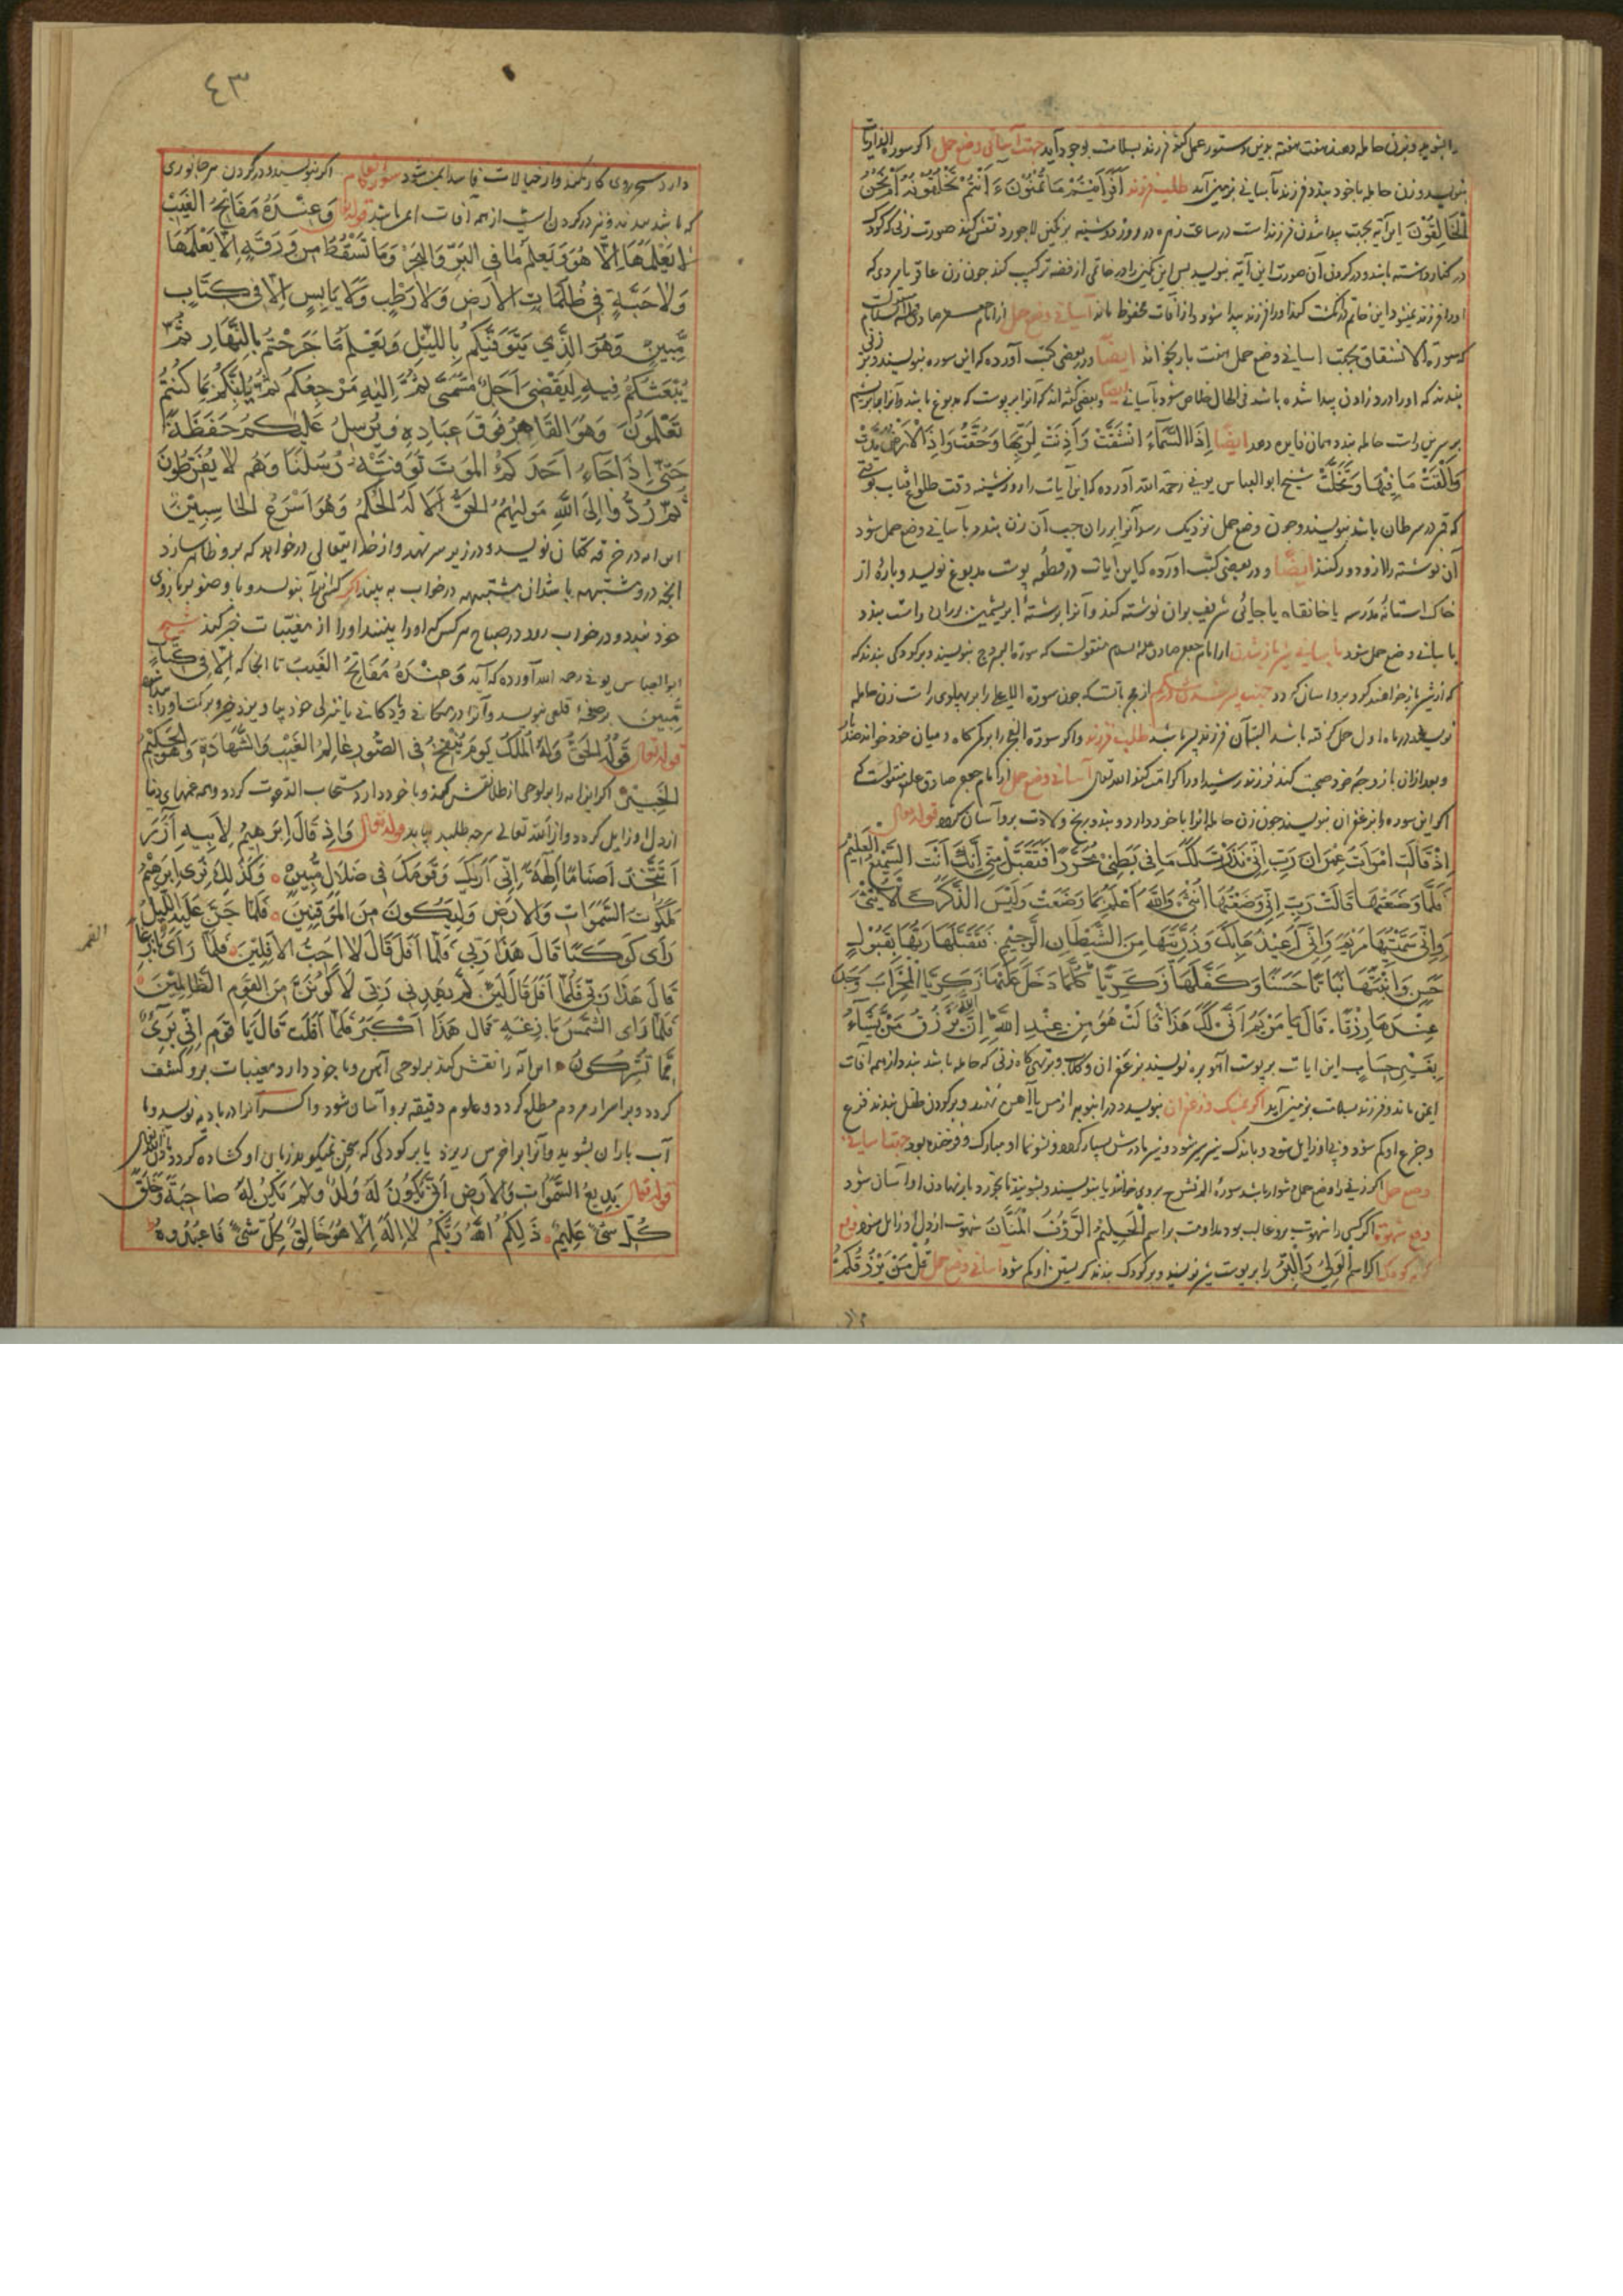 را بشوید و بزن حامله دهند هفت هفته بدین دستور عمل کند فرزند بسلامت بوجود آید جهت آسانی وضع حمل اکر سوره
بنویسد و زن حامله با خود بندد فرزند بآسانی بزمین آید طلب فرزند أَفَرَأَيْتُمْ مَا تُمْنُونَ ءَ أَنْتُمْ تَخْلُقُونَهُ أَمْ نَحْنُ
الْخَالِقُونَ این آیة بجهت پیدا شدن فرزندست در ساعت زهره در روز دوشنبه بر نکین لاجورد نقش کند صورت زنی که کودک
در کنار داشته باشد و در کرد آن صورت این آیة بنویسد پس این نکین را در خاتمی از فضه ترکیب کند چون زن عاقر یا مردی که
اورا فرزند نمیشود این خاتم در انکشت کند اورا فرزند پیدا شود و از آفات محفوظ ماند آسانی وضع حمل از امام جعفر صادق علیه السلام
که سورة الانشقاق بجهت آسانی وضع حمل هفت بار بخواند ایضًا در بعضی کتب آورده که این سوره بنویسند و بر زنی
بندند که اورا درد زادن پیدا شده باشد فی الحال خلاص شود بآسانی ایضا و بعضی کفته اند که آنرا بر پوست که مدبوغ باشد و آنرا بابریشم
بر سرین راست حامله بندد همان فایده دهد ایضًا إِذَا السَّمَاءُ انْشَقَّتْ وَأَذِنَتْ لِرَبِّهَا وَحُقَّتْ وَإِذَا الْأَرْضُ مُدَّتْ
وَأَلْقَتْ مَا فِيهَا وَتَخَلَّتْ شیخ ابو العباس بونی رحمة الله آورده که این آیات را روز شنبه وقت طلوع آفتاب بوقتی
که قمر در سرطان باشد بنویسند و چون وضع حمل نزدیک رسد آنرا بر ران چپ آن زن بندد بآسانی وضع حمل شود
آن نوشته را از و دور کنند ایضًا و در بعضی کتب آورده که این ایات در قطعه پوست مدبوغ نویسد و پاره از
خاک آستانه مدرسه یا خانقاه یا جائی شریف بران نوشته کند و آنرا برشته ابریشمین بر ران راست بندد
بآسانی وضع حمل شود بآسانی شیر باز شدن از امام جعفر صادق علیه السلام منقولست که سورة البروج بنویسند و بر کودکی بندند که
که از شیر باز خواهند کرد برو آسان کردد جهت پسر شدن از هر بابت که چون سورة اللیل را بر پهلوی راست زن حامله
نویسند در ماه اول حمل کرفته باشد البته آن فرزند پسر باشد طلب فرزند و اکر سورة الفجر را بر کمرکاه و میان خود خواند
و بعد ازان با زوجه خود صحبت کند فرزند رشید اورا کرامت کند الله تعالی آسانی وضع حمل از امام جعفر صادق علیه منقولست که
اکر این سوره را بزعفران بنویسند چون زن حامله آنرا با خود دارد و بندد رنج ولادت برو آسان شود قوله تعالی
إِذْ قَالَتِ امْرَأَتُ عِمْرَانَ رَبِّ إِنِّي نَذَرْتُ لَكَ مَا فِي بَطْنِي مُحَرَّرًا فَتَقَبَّلْ مِنِّي إِنَّكَ أَنْتَ السَّمِيعُ الْعَلِيمُ
فَلَمَّا وَضَعَتْهَا قَالَتْ رَبِّ إِنِّي وَضَعْتُهَا أُنْثَى وَاللَّهُ أَعْلَمُ بِمَا وَضَعَتْ وَلَيْسَ الذَّكَرُ كَالْأُنْثَى
وَإِنِّي سَمَّيْتُهَا مَرْيَمَ وَإِنِّي أُعِيذُهَا بِكَ وَذُرِّيَّتَهَا مِنَ الشَّيْطَانِ الرَّجِيمِ فَتَقَبَّلَهَا رَبُّهَا بِقَبُولٍ
حَسَنٍ وَأَنْبَتَهَا نَبَاتًا حَسَنًا وَكَفَّلَهَا زَكَرِيَّا كُلَّمَا دَخَلَ عَلَيْهَا زَكَرِيَّا الْمِحْرَابَ وَجَدَ
عِنْدَهَا رِزْقًا قَالَ يَا مَرْيَمُ أَنَّى لَكِ هَذَا قَالَتْ هُوَ مِنْ عِنْدِ اللَّهِ إِنَّ اللَّهَ يَرْزُقُ مَنْ يَشَاءُ
بِغَيْرِ حِسَابٍ این ایات بر پوست آهو بره نویسند بزعفران و کلاب و بر تهیکاه زنی که حامله باشد بندد از همه آفات
ایمن ماند و فرزند بسلامت بزمین آید اکر بمشک و زعفران بنویسد و در انبوبه از مس یا آهن نهند و بر کردن طفل بندند فزع
و جزع او کم شود و زایل شود و باندک شیر سیر شود و شیر مادرش بسیار کردد و نشو نما او مبارک و فرخنده بود جهت آسانی
وضع حمل اکر زنی را وضع حمل دشوار باشد سوره الم نشرح بروی خوانند یا بنویسند و بشویند تا بخورد بار نهادن او آسان شود
دفع شهوة اکر کسی را شهوت برو غالب بود مداومت بر اسم الْحَلِيمُ الرَّؤُفُ الْمَنَّانُ شهوت از دل او زایل شود دفع
کریه کودک اکر اسم الْوَلِيُّ وَالْبَرُّ را بر پوست شیر نویسند و بر کودک بندند کریستن او کم شود آسانی وضع حمل قُلْ مَنْ يَرْزُقُكُمْ
٤٣
دارد سحر و روی کار نکند و از خیالات فاسد ایمن شود سورة الانعام اکر بنویسند و در کردن هر جانوری
که باشد بندند و نیز در کردن اسب از همه آفات ایمن باشد قوله تعالی وَعِنْدَهُ مَفَاتِحُ الْغَيْبِ
لَا يَعْلَمُهَا إِلَّا هُوَ وَيَعْلَمُ مَا فِي الْبَرِّ وَالْبَحْرِ وَمَا تَسْقُطُ مِنْ وَرَقَةٍ إِلَّا يَعْلَمُهَا
وَلَا حَبَّةٍ فِي ظُلُمَاتِ الْأَرْضِ وَلَا رَطْبٍ وَلَا يَابِسٍ إِلَّا فِي كِتَابٍ
مُبِينٍ وَهُوَ الَّذِي يَتَوَفَّيكُمْ بِاللَّيْلِ وَيَعْلَمُ مَا جَرَحْتُمْ بِالنَّهَارِ ثُمَّ
يَبْعَثُكُمْ فِيهِ لِيُقْضَى أَجَلٌ مُسَمًّى ثُمَّ إِلَيْهِ مَرْجِعُكُمْ ثُمَّ يُنَبِّئُكُمْ بِمَا كُنْتُمْ
تَعْلَمُونَ وَهُوَ الْقَاهِرُ فَوْقَ عِبَادِهِ وَيُرْسِلُ عَلَيْكُمْ حَفَظَةً
حَتَّى إِذَا جَاءَ أَحَدَكُمُ الْمَوْتُ تَوَفَّتْهُ رُسُلُنَا وَهُمْ لَا يُفَرِّطُونَ
ثُمَّ رُدُّوا إِلَى اللَّهِ مَوْلَيهُمُ الْحَقِّ أَلَا لَهُ الْحُكْمُ وَهُوَ أَسْرَعُ الْحَاسِبِينَ
این آیه در خرقه کتان نویسد و در زیر سر نهد و از خدا ایتعالی درخواهد که برو ظاهر سازد
آنچه درو مشتبه باشد آن مشتبه در خواب به بیند اکر کسی این آیه بنویسد و با وضو بر بازوی
خود بندد و در خواب رود در صباح هر کس که اورا بیند اورا از مغیبات خبر کند شیخ
ابو العباس بونی رحمه الله آورده که آیه وَعِنْدَهُ مَفَاتِحُ الْغَيْبِ تا انجا که إِلَّا فِي كِتَابٍ
مُبِينٍ بر صحیفه قلعی بنویسد و آنرا در مکانی و دکانی یا منزلی خود بیاویزد خیر و برکت
قوله تعالی قَوْلُهُ الْحَقُّ وَلَهُ الْمُلْكُ يَوْمَ يُنْفَخُ فِي الصُّورِ عَالِمُ الْغَيْبِ وَالشَّهَادَةِ وَهُوَ الْحَكِيمُ
الْخَبِيرُ اکر این آیه را بر لوحی از طلا نقش کنند و با خود دارد مستجاب الدعوت کردد و همه غمهای دنیا
از دل او زایل کردد و از الله تعالی هرچه طلبد بیابد قوله تعالی وَإِذْ قَالَ إِبْرَهِيمُ لِأَبِيهِ آزَرَ
أَتَتَّخِذُ أَصْنَامًا آلِهَةً إِنِّي أَرَيكَ وَقَوْمَكَ فِي ضَلَالٍ مُبِينٍ وَكَذَلِكَ نُرِي إِبْرَهِيمَ
مَلَكُوتَ السَّمَوَاتِ وَالْأَرْضِ وَلِيَكُونَ مِنَ الْمُوقِنِينَ فَلَمَّا جَنَّ عَلَيْهِ اللَّيْلُ
رَأَى كَوْكَبًا قَالَ هَذَا رَبِّي فَلَمَّا أَفَلَ قَالَ لَا أُحِبُّ الْآفِلِينَ فَلَمَّا رَأَى بَازِغًا
القمر
قَالَ هَذَا رَبِّي فَلَمَّا أَفَلَ قَالَ لَئِنْ لَمْ يَهْدِنِي رَبِّي لَأَكُونَنَّ مِنَ الْقَوْمِ الظَّالِمِينَ
فَلَمَّا رَأَى الشَّمْسَ بَازِغَةً قَالَ هَذَا أَكْبَرُ فَلَمَّا أَفَلَتْ قَالَ يَا قَوْمِ إِنِّي بَرِيءٌ
مِمَّا تُشْرِكُونَ این آیه را نقش کنند بر لوحی آهن و با خود دارد مغیبات برو کشف
کردد و بر اسرار مردم مطلع کردد و علوم دقیقه برو آسان شود و اکر آنرا در بادیه نویسد و با
آب باران بشوید و آنرا بر اخرس ریزد یا بر کودکی که سخن نمیکوید زبان او کشاده کردد
قوله تعالی بَدِيعُ السَّمَوَاتِ وَالْأَرْضِ أَنَّى يَكُونُ لَهُ وَلَدٌ وَلَمْ يَكُنْ لَهُ صَاحِبَةٌ وَخَلَقَ
كُلَّ شَيْءٍ عَلِيمٌ ذَلِكُمُ اللَّهُ رَبُّكُمْ لَا إِلَهَ إِلَّا هُوَ خَالِقُ كُلِّ شَيْءٍ فَاعْبُدُوهُ